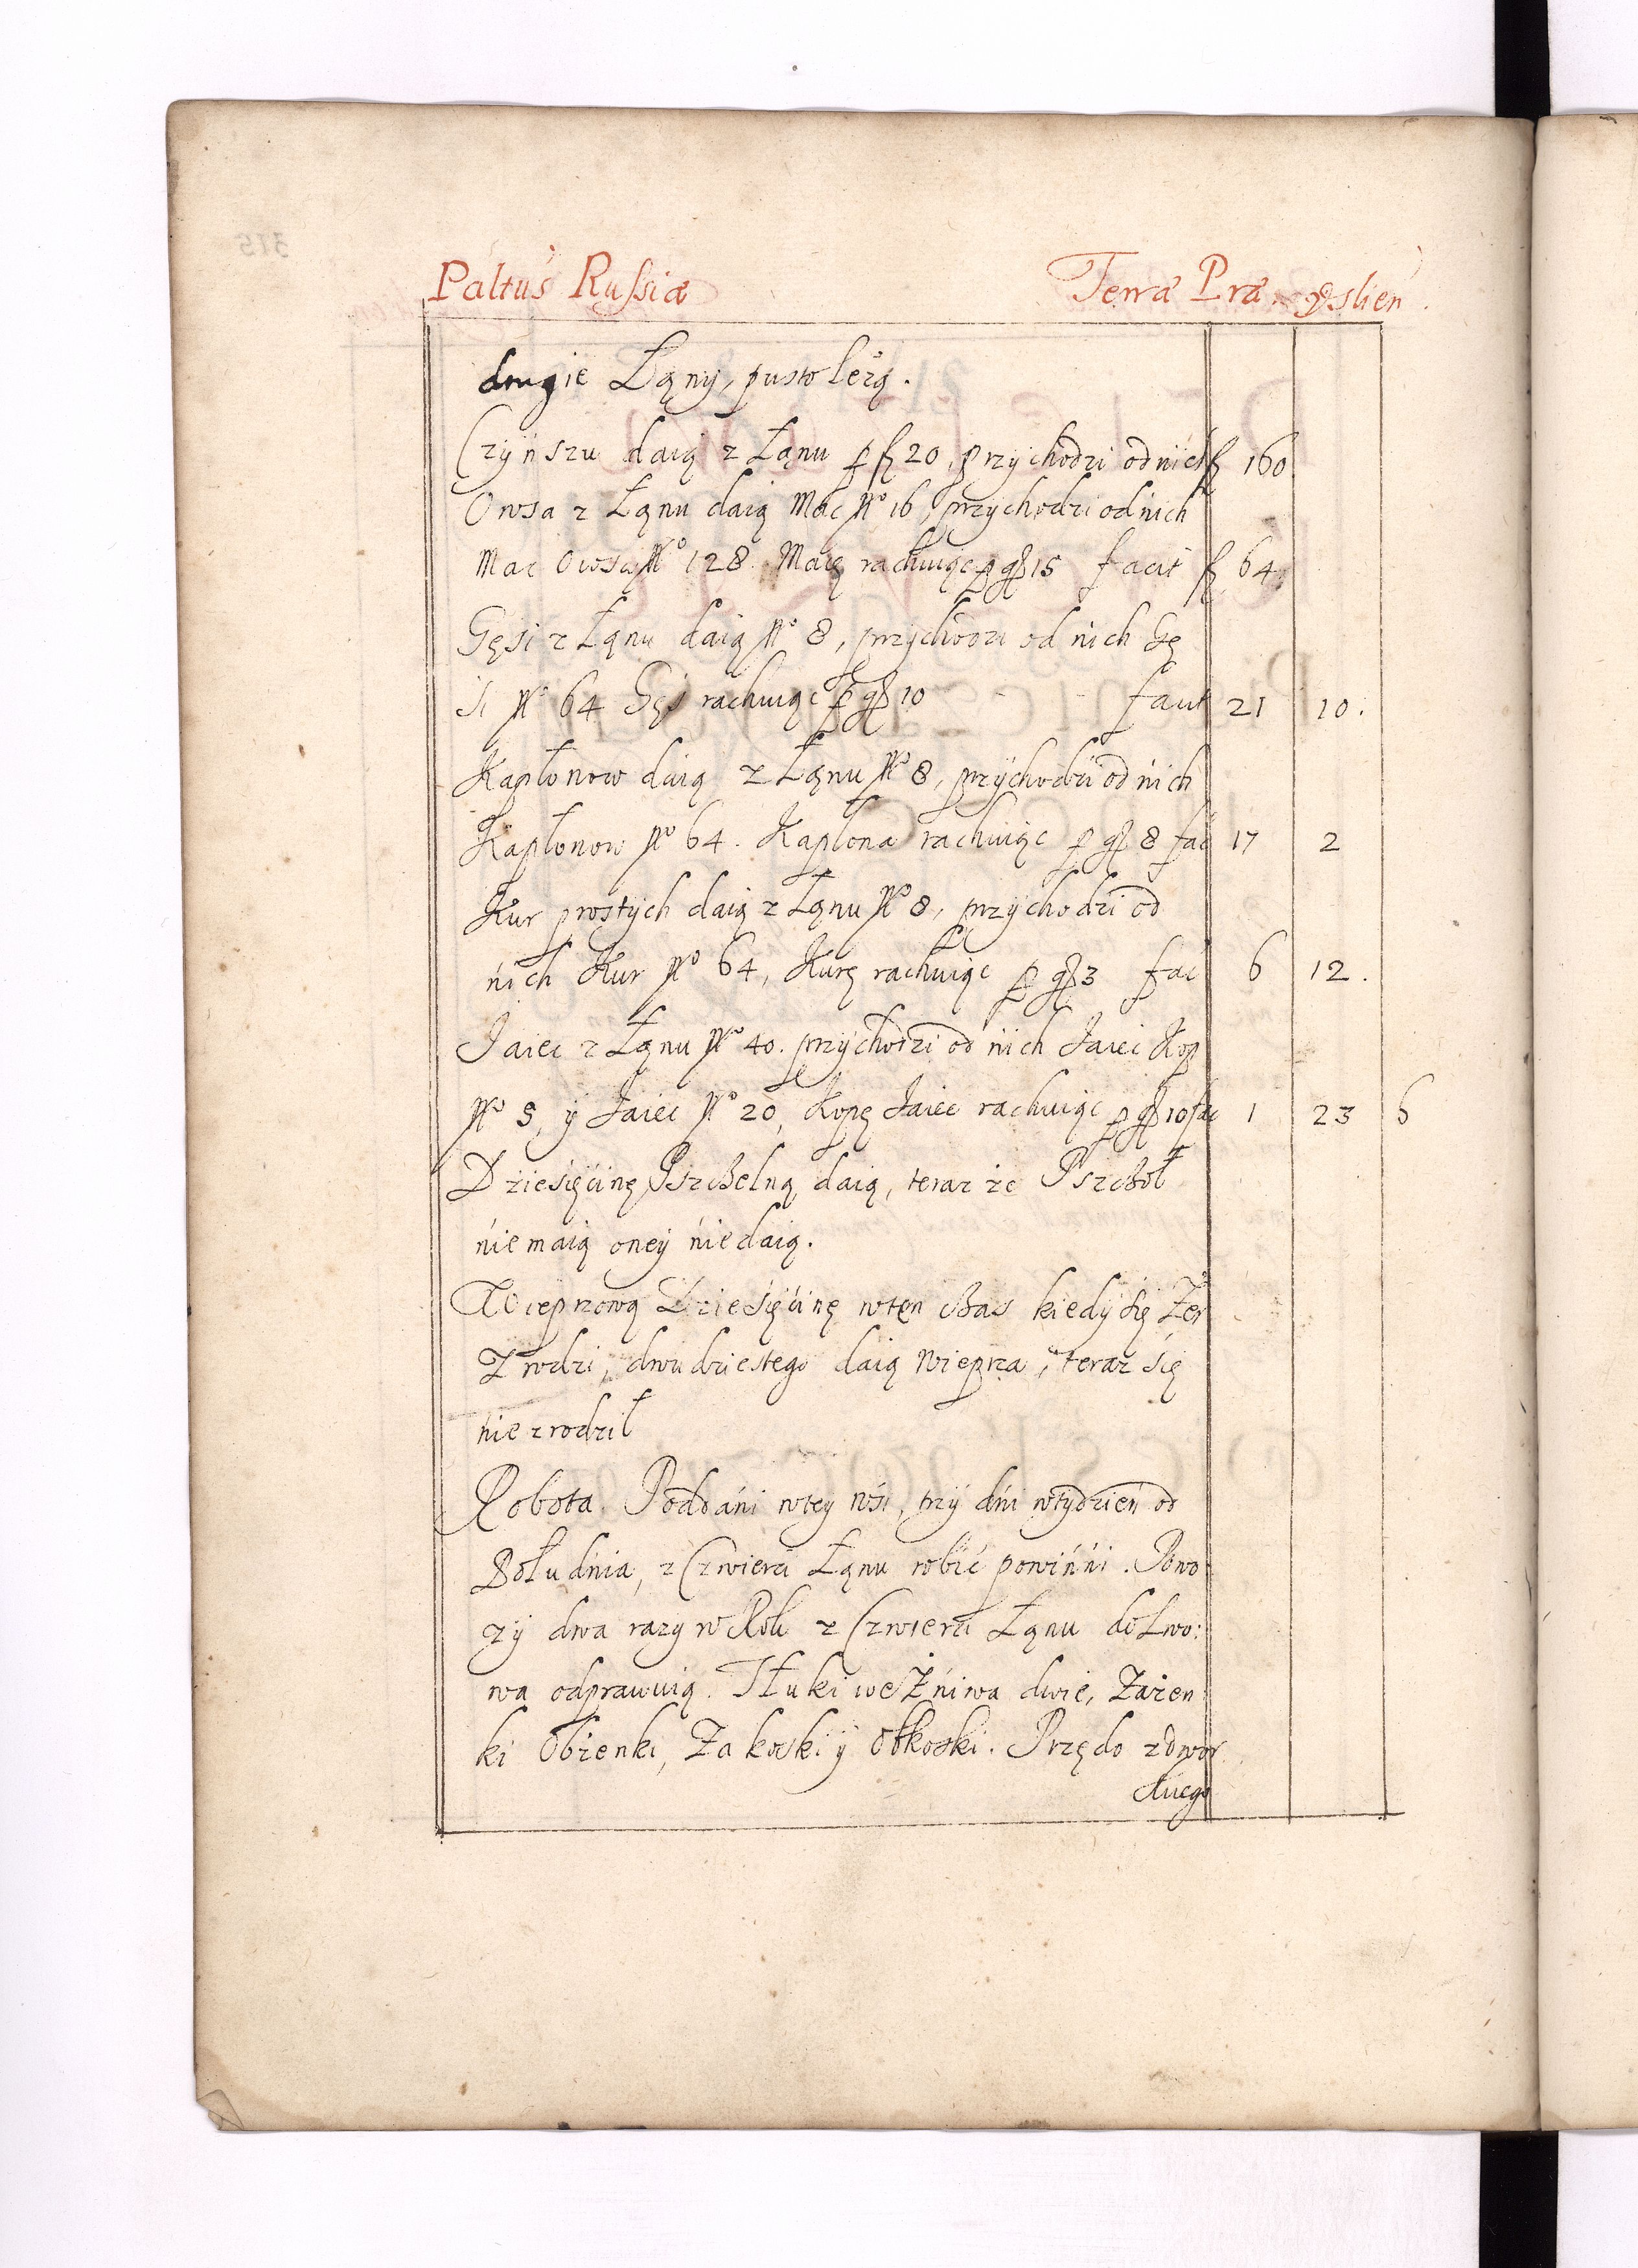 Páltus Russiæ Terræ Præmyslien
drugie Łąny, pusto leżą.
Czynszu daią z Łąnu p fl 20, przychodzi od nich fl 160
Owsa z Łąnu daią Mac No 16, przychodzi od nich
Mac Owsa No 128. Macę rachuiąc p gr 15 facit fl 64
Gęsi z Łąnu daią No 8, przychodzi od nich Gę
si No 64 Gęś rachuiąc p gr 10 - - facit 21 10.
Kapłonow daią z Łąnu No 8, przychodzi od nich
Kapłonow No 64. Kapłona rachuiąc p gr 8 fac 17 2
Kur prostych daią z Łąnu No 8, przychodzi od
nich Kur No 64, Kurę rachuiąc p gr 3 fac 6 12.
Jaiec z Łąnu No 40. przychodzi od nich Jaiec Kop
No 5, y Jaiec No 20, Kopę Jaiec rachuiąc p gr 10 fac 1 23 6
Dziesięćinę Pszczelną daią, teraz że Pszczoł
nie maią oney nie daią.
Wieprzową Dziesięćinę w ten czas kiedy się Żer
Zrodzi, dwudziestego daią Wieprza, teraz się
nie zrodził
Robota. Poddáni w tey wśi, trzy dni w tydzień od
Południa, z Czwierci Łąnu robić powinni. Powo
zy dwa razy w Rok z Czwierci Łąnu do Lwo:
wa odprawuią. Tłuki we Żniwa dwie, Zażen
ki Obżenki, Zakoski y Obkoski. Przędo z dwor
skiego